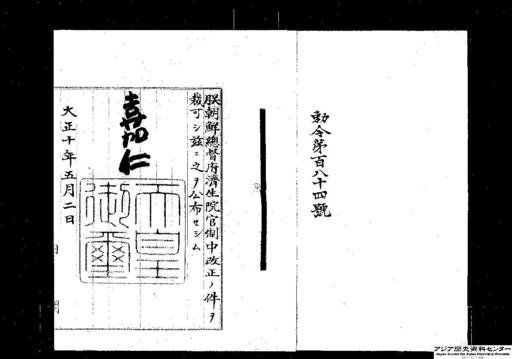 勅令第百八十四號
朕朝鮮總督府濟生院官制中改正ノ件ヲ
裁可シ玆ニ之ヲ公布セシム
嘉仁
天皇
御璽
大正十年五月二日
アジア歴史資料センター
Japan Center for Asian Historical Records